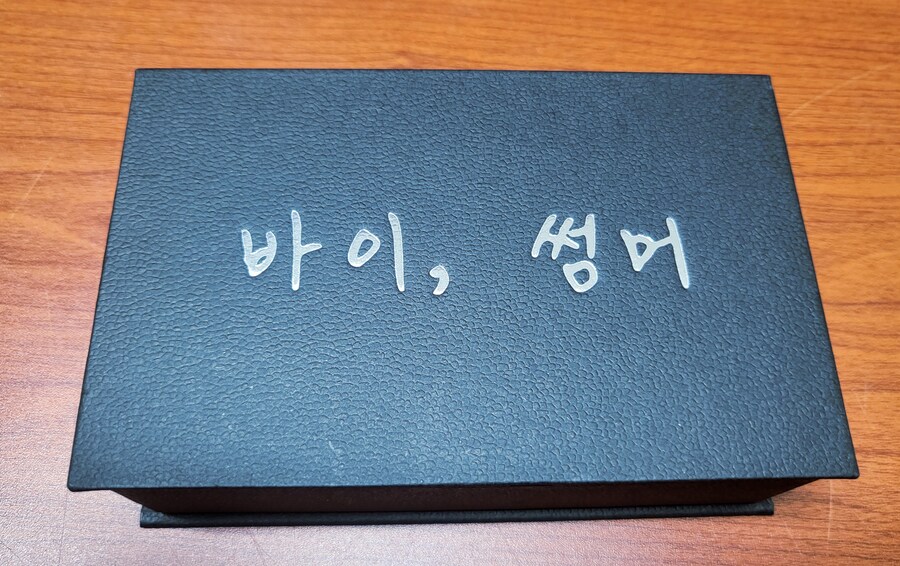 바이, 썸머